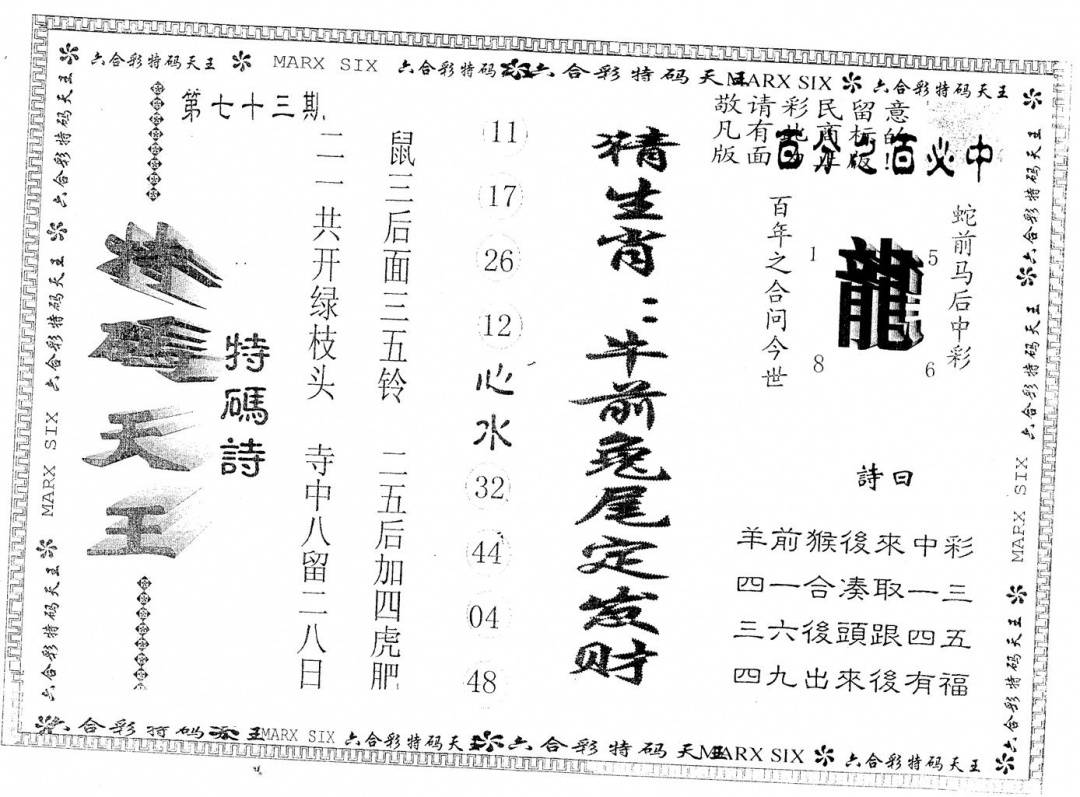 六合彩特码天王 MARX SIX 六合彩特码 六合彩特码天王 MARX SIX 六合彩特码天王
第七十三期
敬请彩民留意
凡有此商标的
版面为正版!
百分之百必中
特碼天王
特碼詩
二一共开绿枝头 寺中八留二八日
鼠三后面三五铃 二五后加四虎肥
11
17
26
12
心水
32
44
04
48
猜生肖：牛前兔尾定发财
百年之合问今世
1
5
龍
8
6
蛇前马后中彩
詩曰
羊前猴後來中彩
四一合凑取一三
三六後頭跟四五
四九出來後有福
六合彩特码天王 MARX SIX 六合彩特码天王
六合彩特码天王 六合彩特码天王 MARX SIX 六合彩特码天王
六合彩特码 王 MARX SIX 六合彩特码天王 六合彩特码天王 MARX SIX 六合彩特码天王